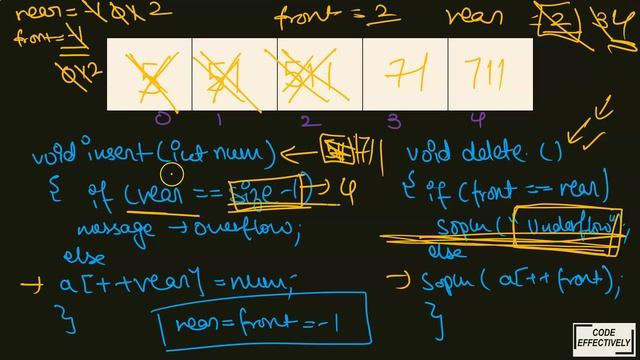 rear = -1 0 1 2
front = 2
rear = 2 3 4
front = -1
0 1 2
5 51 511 71 711
0 1 2 3 4
void insert (int num) ← 711
void delete ()
{ if (rear == size -1) → 4
{ if (front == rear)
message → overflow;
sopln (" Underflow ;
else
else
→ a[++rear] = num;
→ sopln ( a[++front);
}
}
rear = front = -1
CODE
EFFECTIVELY